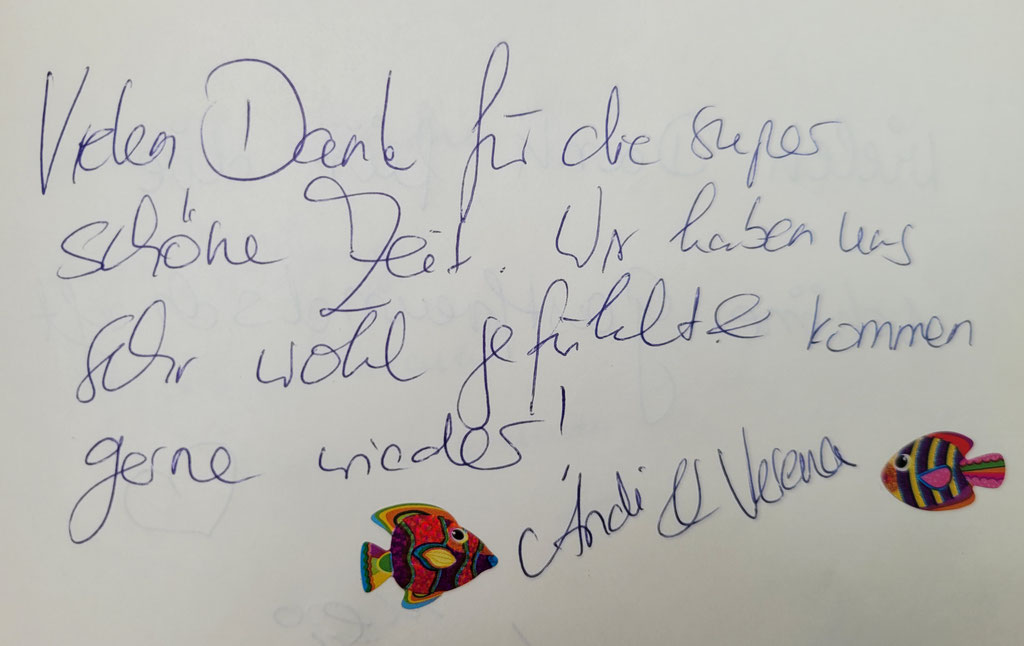 Vielen Dank für die super
schöne Zeit. Wir haben uns
sehr wohl gefühlt & kommen
gerne wieder!
Andi & Verena